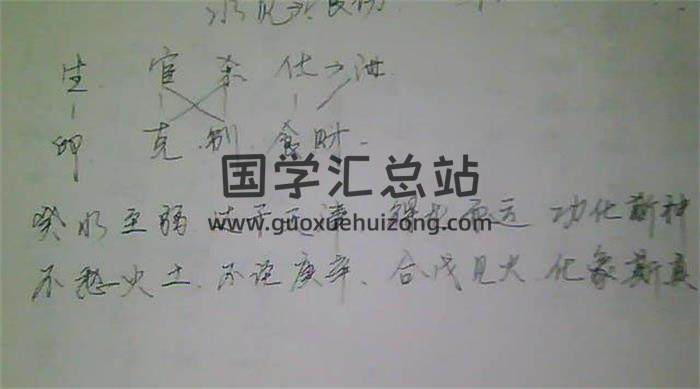 生 官 杀 泄
印 克 制 食 财
国学汇总站
www.guoxuehuizong.com
癸水至弱 达于天津 得龙而运 功化斯神
不愁火土、不论庚辛、合戊见火 化象斯真